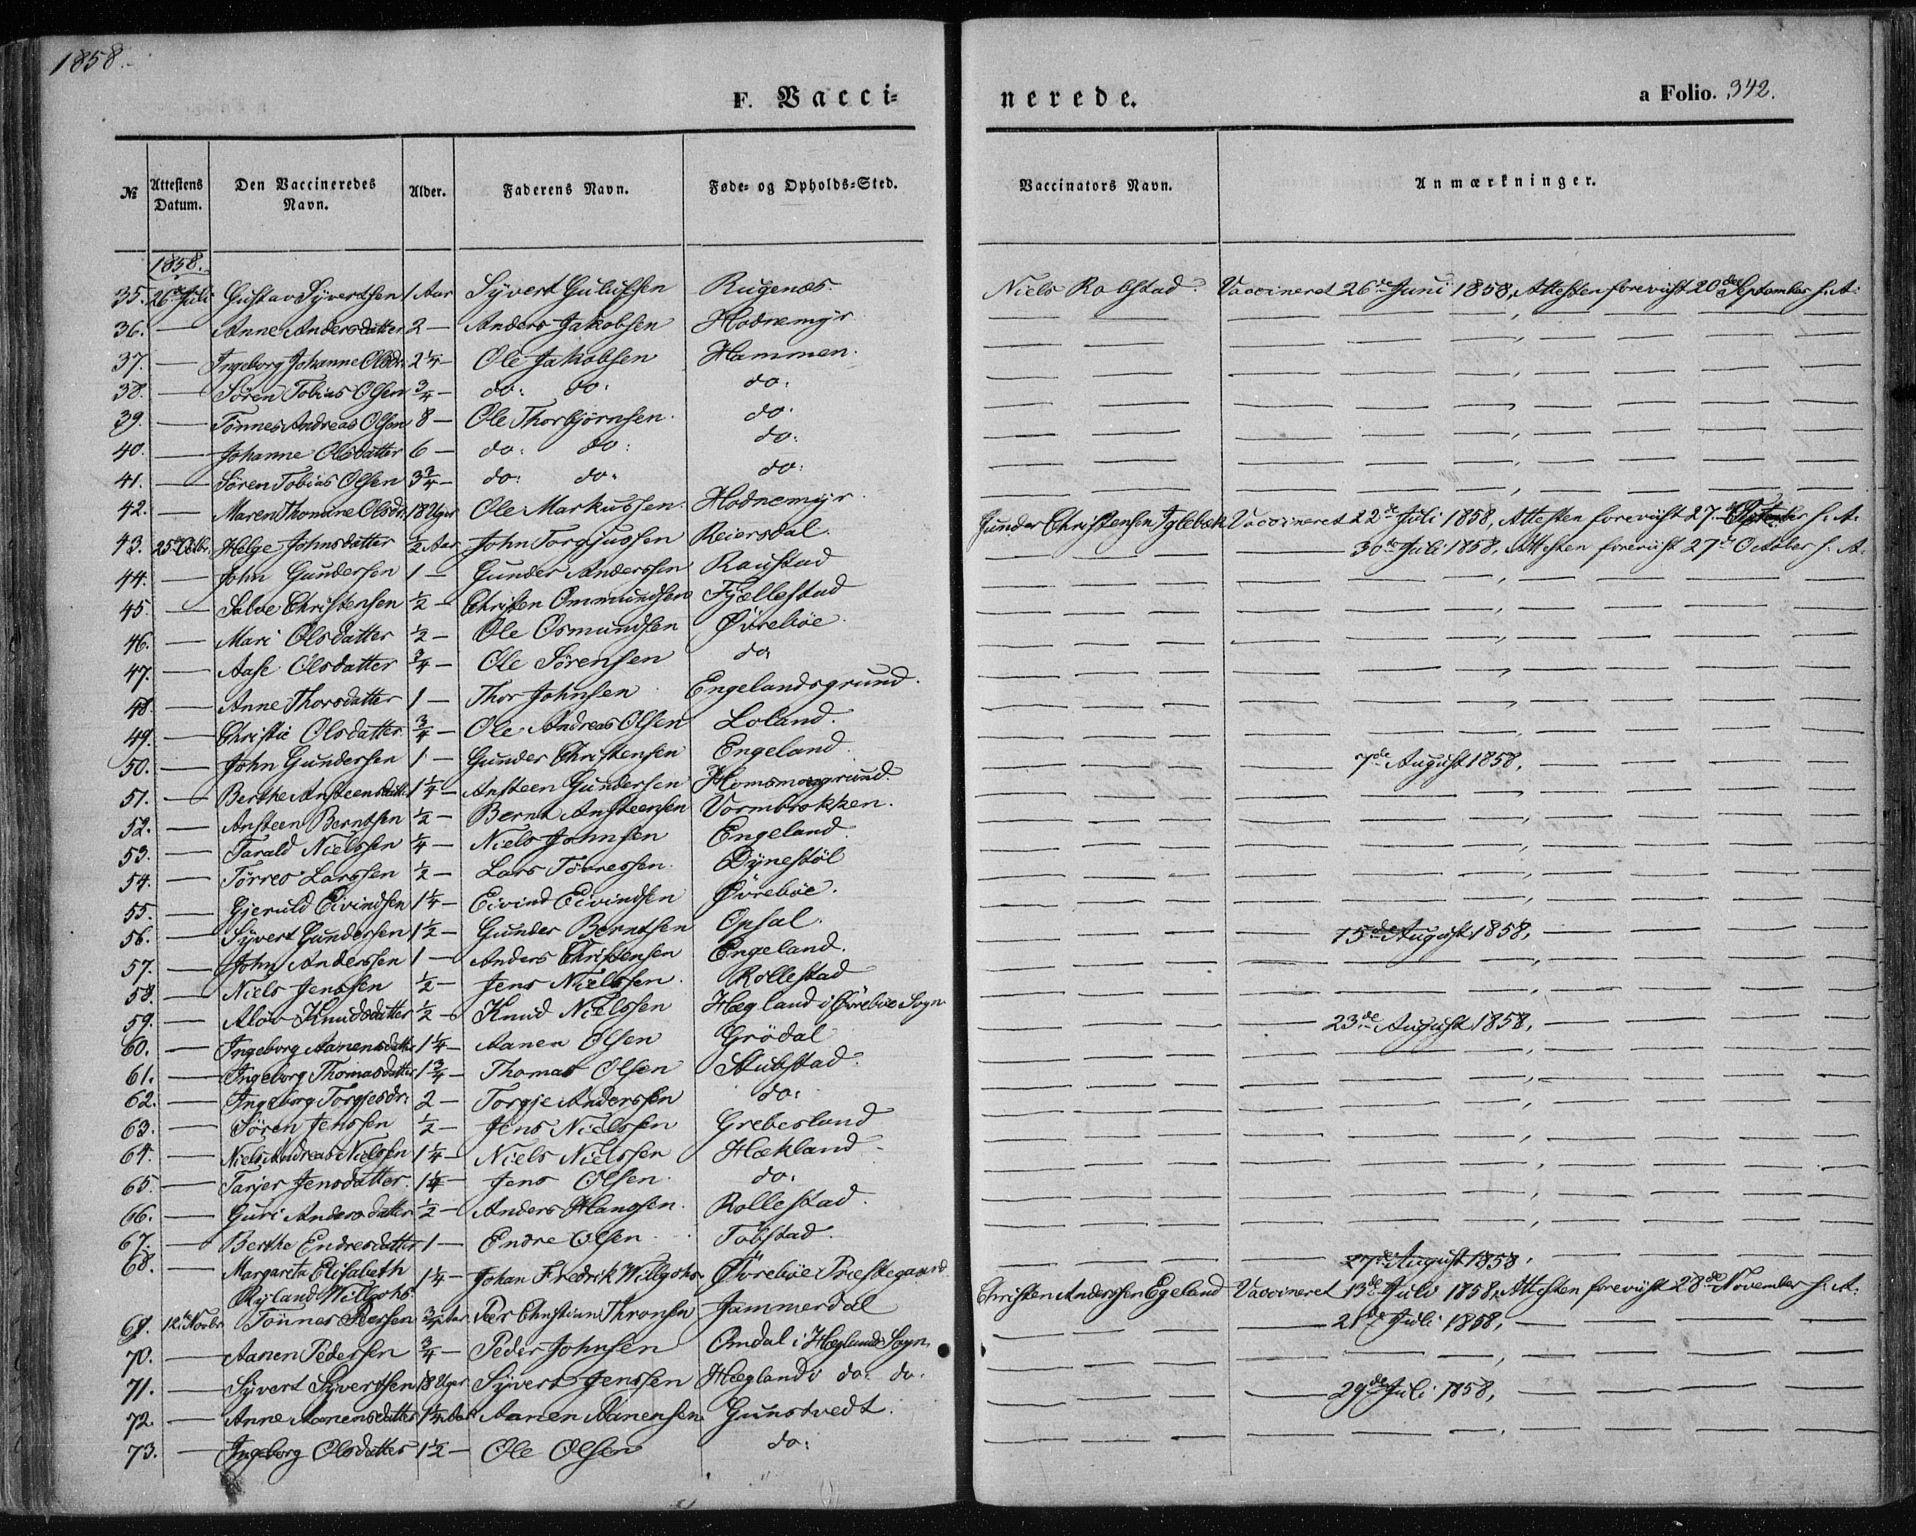 1858.
F. Vacci-
nerede.
a Folio. 342.
№ Attestens Datum. Den Vaccineredes Navn. Alder. Faderens Navn. Føde- og Opholds-Sted. Vaccinators Navn. Anmærkninger.
1858.
35. 26de Juli Gustav Syvertsen 1 Aar Syvert Gulufsen Rugenæs. Niels Robstad. Vaccineret 26de Juni 1858, Attesten foreviist 20de September s. A.
36. — Anne Andersdatter 2 — Anders Jakobsen Hodnemyr — — — —
37. — Ingeborg Johanne Olsdr. 2 1/4 — Ole Jakobsen Hammen. — — — —
38. — Søren Tobias Olsen 3/4 — do: do: do: — — — —
39. — Tønnes Andreas Olsen 8 — Ole Thorbjørnsen. do: — — — —
40. — Johanne Olsdatter 6 — do: do: do: — — — —
41. — Søren Tobias Olsen 3 3/4 — do: do: do: — — — —
42. — Maren Thomine Olsdr. 18 Uger Ole Markussen. Hodnemyr. — — — —
43. 25de Octbr. Helge Johnsdatter 1/2 Aar John Torgjussen Reiersdal. Gunder Christensen Iglebæk Vaccineret 22de Juli 1858, Attesten foreviist 27de s. A.
44. — John Gundersen 1 — Gunder Anderssen Raustad — — 30de Juli 1858, Attesten foreviist 27de October s. A.
45. — Salve Christensen 1/2 — Christen Ommundsen Fjællestad — — — —
46. — Mari Olsdatter 1/2 — Ole Osmundsen Øvrebøe. — — — —
47. — Aase Olsdatter 3/4 — Ole Sørensen do — — — —
48. — Anne Thorsdatter 1 — Thor Johnsen Engelandsgrund. — — — —
49. — Christie Olsdatter 3/4 — Ole Andreas Olsen Loland. — — — —
50. — John Gundersen 1 — Gunder Christensen Engeland. — — — —
51. — Berthe Ansteensdatt. 1 1/4 — Ansteen Gundersen Homsmongrund — — 7de August 1858, — —
52. — Ansteen Berntsen 1/2 — Bernt Ansteensen Vormbrokken. — — — —
53. — Tarald Nielssen 1/4 — Niels Johnsen Engeland. — — — —
54. — Tørres Larssen 1/2 — Lars Tørressen. Dynestøl — — — —
55. — Gjeruld Eivindsen 1 1/4 — Eivind Eivindsen Øvrebøe. — — — —
56. — Syvert Gundersen 1 1/2 — Gunder Berntsen Opsal. — — — —
57. — John Anderssen 1 — Anders Christensen Engeland. — — 15de August 1858, — —
58. — Niels Jenssen 1/2 — Jens Nielssen. Rollestad — — — —
59. — Aløv Knudsdatter 1/2 — Knud Nielssen Hægland i Øvrebøe Sogn — — — —
60. — Ingeborg Aanensdatter 1 1/4 — Aanen Olsen Grödal — — 23de August 1858, — —
61. — Ingeborg Thomasdatter 1 3/4 — Thomas Olsen Stubstad. — — — —
62. — Ingeborg Torgjesdr: 2 — Torgje Anderssen do: — — — —
63. — Søren Jenssen 1/2 — Jens Nielssen Grebesland — — — —
64. — Niels Andreas Nielssen 1 1/4 — Niels Nielssen Hækland — — — —
65. — Tarjer Jensdatter 1 1/4 — Jens Olsen. do: — — — —
66. — Guri Andersdatter 1/2 — Anders Hanssen. Rollestad. — — — —
67. — Berthe Endresdatter 1 — Endre Olsen. Tobstad. — — — —
68. — Margareta Elisabeth Ryland Willgohs 1 1/4 — Johan Fredrik Willgohs. Øvrebøe Præstegaard — — 27de August 1858.
69. 12te Novbr. Tönnes Persen 3/4 Aar Peer Christian Thronsen Jammerdal Christen Anderssen Egeland Vaccineret 13de Juli 1858, Attesten foreviist 28de November s. A.
70. — Aanen Pedersen 3/4 — Peder Johnsen Omdal i Hæglands Sogn — — 21de Juli 1858, — —
71. — Syvert Syvertsen 18 Uger Syvert Jenssen Hæglands do: do: — — — —
72. — Anne Aanensdatter 1 1/4 Aar Aanen Aanensen. Gunstvedt. — — 29de Juli 1858, — —
73. — Ingeborg Olsdatter 1 1/2 — Ole Olsen do: — — — —